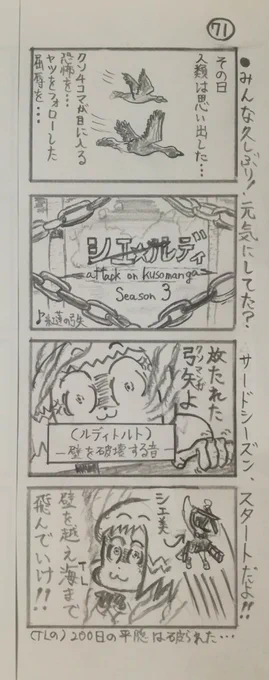 71
●みんな久しぶり！元気にしてた？ サードシーズン、スタートだよ!!
その日
人類は思い出した…
クソ4コマが目に入る
恐怖を…
ヤツをフォローした
屈辱を…
シエ☆ルディ
attack on kusomanga
Season 3
♪紅蓮の弓矢
放たれた
クソマンガ
弓矢よ
(ルディトルト)
―壁を破壊する音―
シエ美
壁を越え海まで
TL
飛んでいけ!!
(TLの)200日の平穏は破られた…